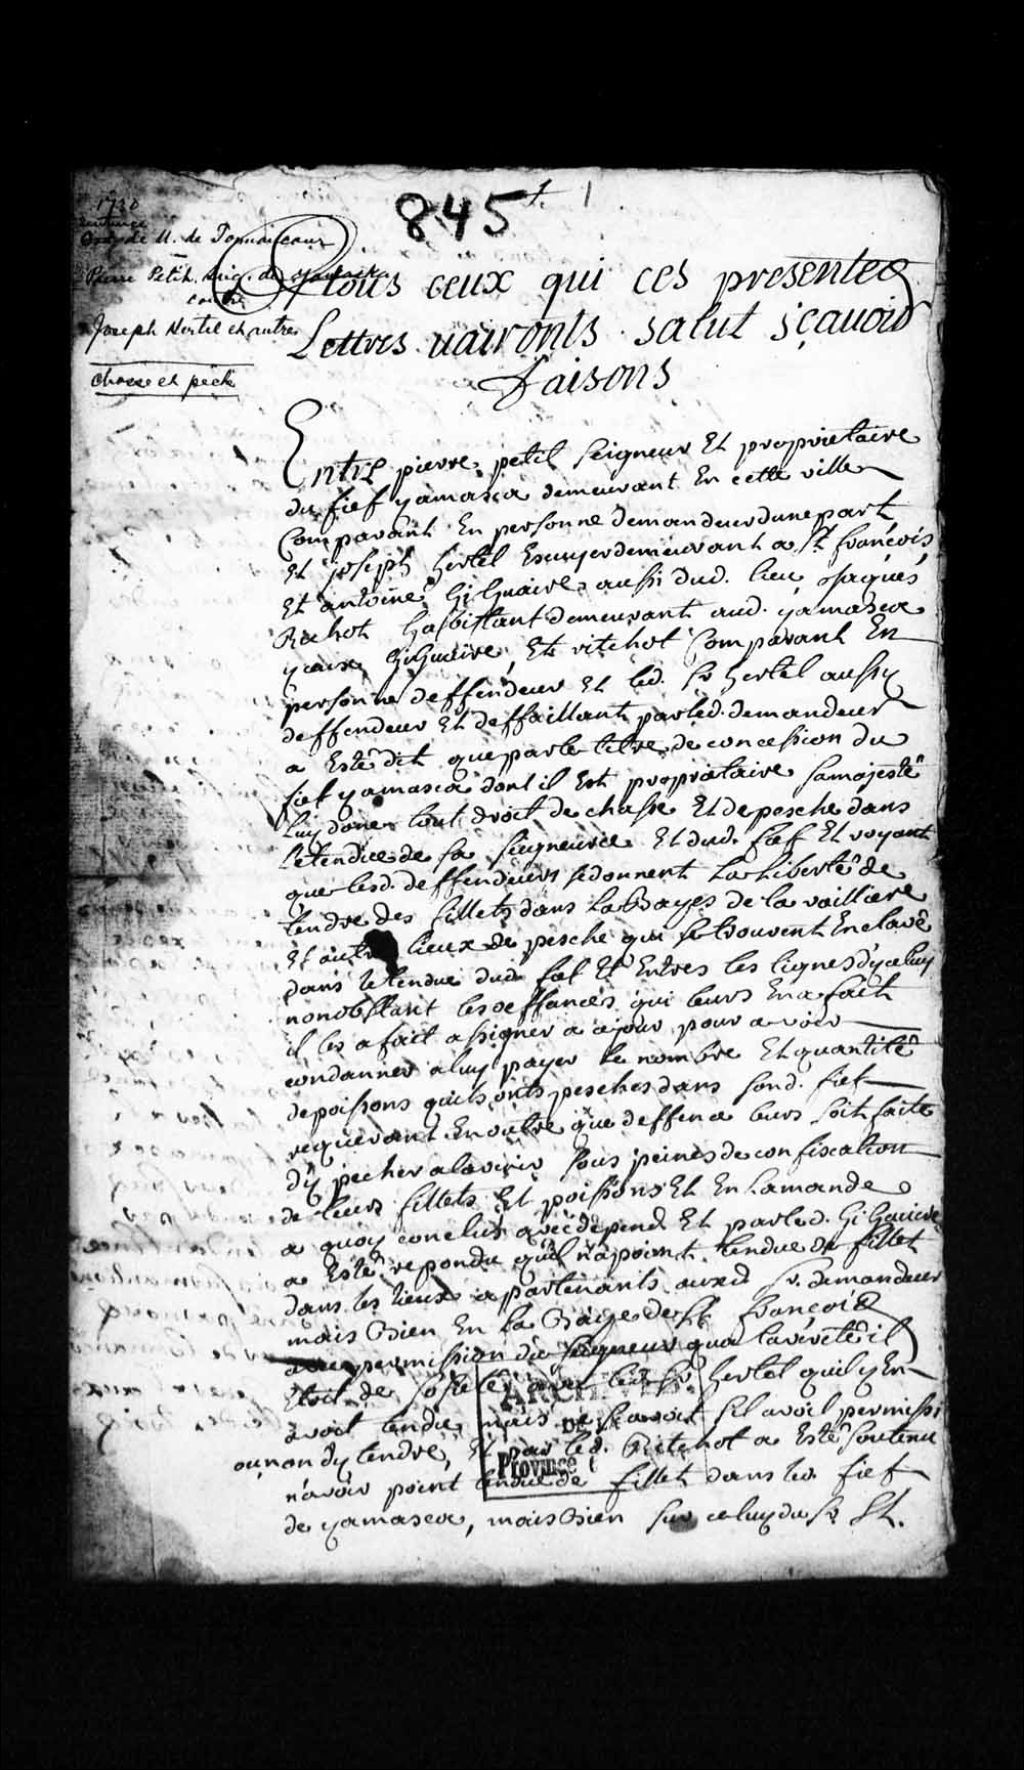 845
1
1730
Sentence
de M. de Tonnancour
Pierre Petit, seig. de
contre
Joseph Hertel et autres
chasse et pêche
A tous ceux qui ces presentes
Lettres vairronts salut sçavoir
faisons
Entre pierre petit seigneur Et proprietaire
du fief yamasca demeurant En cette ville
Comparant En personne demandeur dune part
Et joseph hertel Escuyer demeurant a St françois
Et antoine Gilguaire aussi dud. lieu Jaques
Richot habittant demeurant aud. yamasca
yceux Gilguaire, Et ritchot Comparant En
personne deffendeur Et led. Sr hertel aussy
deffendeur Et deffaillant par led. demandeur
a Esté dit que par le titre de concession du
fief yamasca dont il Est proprietaire samajesté
luy donne tout droit de chasse Et de pesche dans
letendue de sa seigneurie Et dud. fief Et voyant
que lesd. deffendeurs se donnent la Liberté de
tendre des fillets dans la Bayes de la valliere
Et autre lieux de pesche qui se trouvent Enclavé
dans letendue dud. fief Et Entres les lignes dyceluy
nonobstant les deffances qui leurs En a fait
il les a fait assigner a ajour pour avoir
condanner a luy payer le nombre Et quantité
de poissons quils onts peschés dans sond. fief
requerant En outre que deffence leurs soit faite
dy pecher alavenir sous peines de confiscation
de leurs fillets Et poissons Et En lamande
a quoy conclus avec depend Et par led. Gilguaire
a Esté repondu quil na point tendue de fillet
dans les lieux apartenants aud Sr. demandeur
mais Bien En la Baye de St françois
permission du seigneur qua laverité il
Etoit de societé avec led. Sr hertel quil y En
avoit tendu mais ne scavoit sil avoit permissi
ou non dy tendre, Et par led. Ritchot a Esté soutenu
navoir point tendue de fillet dans led. fief
de yamasca, mais Bien sur celuy du Sr St.
ARCHIVES
DE LA
Province